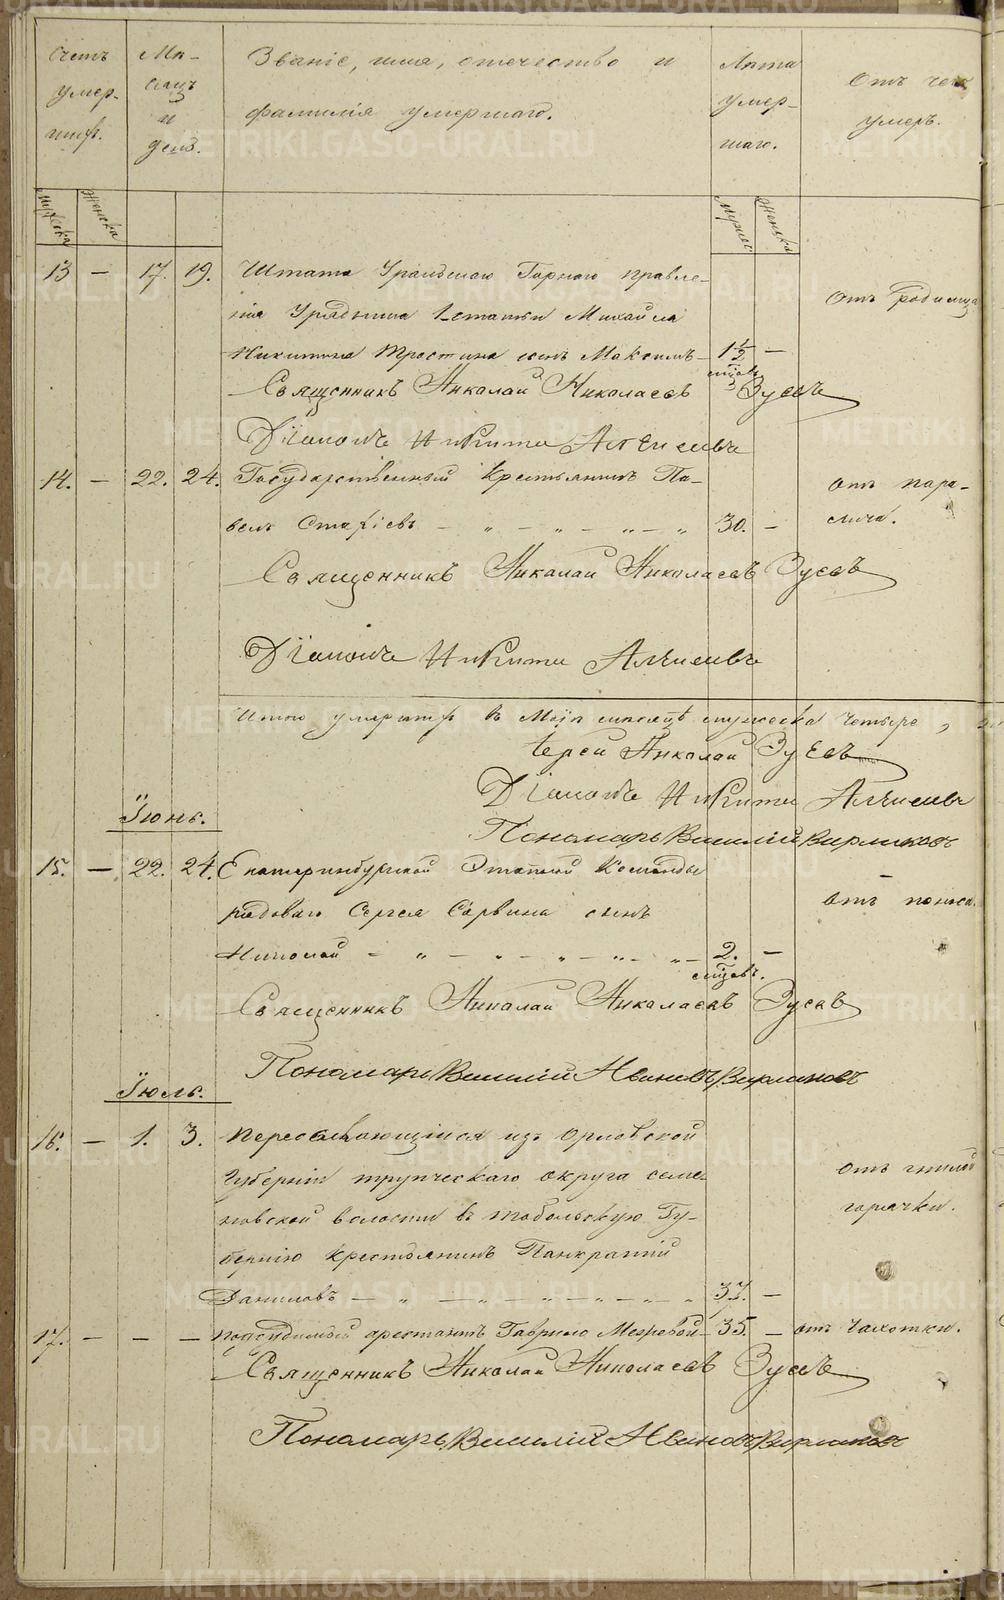 Счетъ умер-шихъ.
Мѣ-сяцъ и день.
Званіе, имя, отечество и
фамилія умершаго.
Лѣта умер-шаго.
Отъ чего умеръ.
мужеска
женска
мужес
женска
13 — 17. 19. Штата Уральскаго Горнаго Правле-
нія Урядника 1 статьи Михаила
Никитина Тростина сынъ Максимъ — 1½ —
мѣсяцъ
отъ родимца
Священникъ Николай Николаевъ Зуевъ
Діаконъ Никита
14. — 22. 24. Государственный крестьянинъ Па-
велъ — „ — „ — „ — „ 30. —
отъ пара-
лича.
Священникъ Николай Николаевъ Зуевъ
Діаконъ Никита
Итого умершихъ въ Маѣ мѣсяцѣ мужеска четыре,
Іерей Николай Зуевъ
Діаконъ Никита
Пономарь Василій
Іюнь.
15. — 22. 24. Екатеринбургской Этапной Команды
рядоваго Сергея сынъ
Николай — „ — „ — „ — „ — „ — 2. —
мѣсяцовъ.
отъ поноса.
Священникъ Николай Николаевъ Зуевъ
Пономарь Василій Ивановъ
Іюль.
16. — 1. 3. Пересылающійся изъ Орловской
Губерніи округа
волости въ Тобольскую Гу-
бернію крестьянинъ Панкратій
Даниловъ — „ — „ — „ — „ — „ 37. —
отъ гнилой
горячки.
17. — — — Подсудимый арестантъ Гаврило — 35. — отъ чахотки.
Священникъ Николай Николаевъ Зуевъ
Пономарь Василій Ивановъ
METRIKI.GASO-URAL.RU